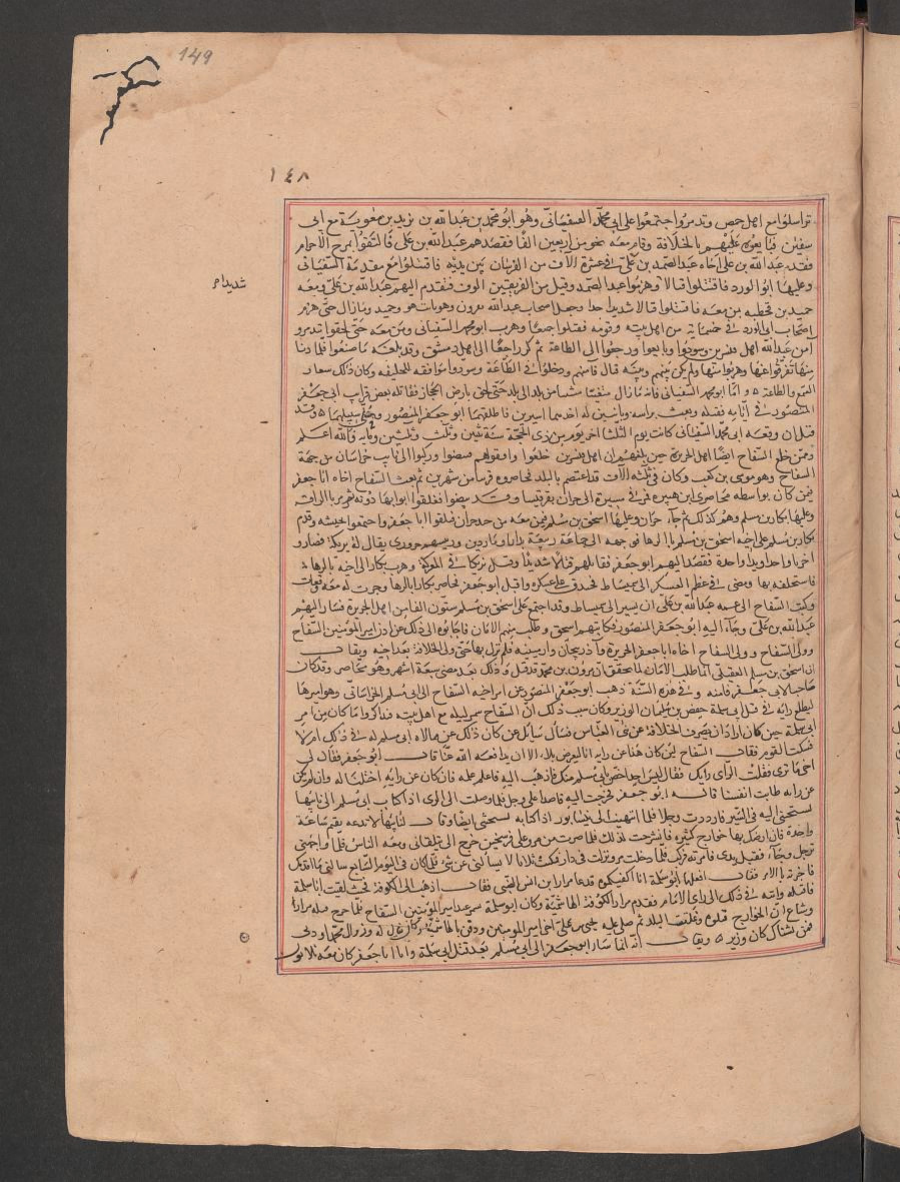 149
١٤٨
تراسلوا مع اهل حمص وتدمر واجتمعوا على ابى محمد السفيانى وهو ابو محمد بن عبد الله بن يزيد بن معوية مع ابى
سفين فبايعوه عليهم بالخلافة وقام معه نحو من اربعين الفا فقصدهم عبد الله بن على فالتقوا بمرج الاخرام
فقدم عبد الله بن على اخاه عبد الصمد بن على فى عشرة الاف من الفرسان بين يديه فاقتتلوا مع مقدمة السفيانى
وعليها ابو الورد فاقتتلوا قتالا وهزموا عبد الصمد وقتل من الفريقين الوف فتقدم اليهم عبد الله بن على ومعه
شديدا
حميد بن قحطبه بمن معه فاقتتلوا قتالا شديدا جدا وجعل اصحاب عبد الله يفرون وهو ثابت هو وحميد وما زال حتى هزم
اصحاب ابى الورد فى خمسماية من اهل بيته وقومه فقتلوا جميعا وهرب ابو محمد السفيانى ومن معه حتى لحقوا بتدمر
آمن عبد الله اهل قنسرين وسودوا وبايعوا ورجعوا الى الطاعة ثم كر راجعا الى اهل دمشق وقد بلغه ما صنعوا فلما دنا
منها تفرقوا عنها وهربوا منها ولم يكن بينهم وبينه قتال فآمنهم ودخلوا فى الطاعة وسودوا موافقه للخليفه وكان ذلك شعار
السمع والطاعة ٥ واما ابو محمد السفيانى فانه ما زال مشتتا من بلد الى بلد حتى لحق بارض الحجاز فقاتله بعض نواب ابى جعفر
المنصور فى ايامه فقتله وبعث براسه وبابنين له اخدهما اسيرين فاطلقهما ابو جعفر المنصور وخلى سبيلهما ٥ وقد
قيل ان وقعه ابى محمد السفيانى كانت يوم الثلثا اخر يوم من ذى الحجة سنة ثنتين وثلث وثلثين وماية فالله اعلم
وممن خلع السفاح ايضا اهل الجزيرة حين بلغهم ان اهل قنسرين خلعوا وافقوهم فبيضوا وركبوا الى نايب خراسان من جهة
السفاح وهو موسى بن كعب وكان فى ثلثه الاف قد اعتصم بالبلد فحاصروه قريبا من شهرين ثم بعث السفاح اخاه ابا جعفر
فيمن كان بواسطه محاصرى ابن هبيره فمر فى مسيره الى حران بقرقيسا وقد بيضوا فغلقوا ابوابها دونه ثم مر بالرقه
وعليها بكار بن مسلم وهم كذلك ثم جاء حران وعليها اسحق بن مسلم فيمن معه من حصرها فتلقوا ابا جعفر واجتمعوا بجيشه وقدم
بكار بن مسلم على اخيه اسحق بن مسلم بالرها فوجهه الى جماعة ربيعة بدارا وماردين ورييسهم حرورى يقال له بريكة فصاروا
حزبا واحدا ويدا واحدة فقصد اليهم ابو جعفر فقاتلهم قتالا شديدا وقتل بريكا فى المعركة وهرب بكار الى اخيه بالرها
فاستخلفه بها ومضى فى عظم العسكر الى سميساط فخندق على عسكره واقبل ابو جعفر فحاصر بكارا بالرها وجرت له معه وقعات
وكتب السفاح الى عمه عبد الله بن على ان يسير الى سميساط وقد اجتمع على اسحق بن مسلم ستون الفا من اهل الجزيرة فسار اليهم
عبد الله بن على وجاء اليه ابو جعفر المنصور فكاتبهم اسحق وطلب منهم الامان فاجابوه الى ذلك عن اذن امير المومنين السفاح
وولى السفاح اخاه ابا جعفر الجزيرة واذربيجان وارمينيه فلم يزل بها حتى ولى الخلافة بعد اخيه ويقال
ان اسحق بن مسلم العقيلى انما طلب الامان لما تحقق ان مرون بن محمد قد قتل وذلك بعد مضى سبعة اشهر وهو محاصر وقد كان
صاحبا لابى جعفر فامنه وفى هذه السنة ذهب ابو جعفر المنصور عن امر اخيه السفاح الى ابى مسلم الخراسانى وهو اميرها
ليطلع رايه فى قتل ابى سلمة حفص بن سليمان الوزير وكان سبب ذلك ان السفاح سمر ليله مع اهل بيته فتذاكروا ما كان من امر
ابى سلمة حين كان اراد ان يصرف الخلافة عن بنى العباس فسأل سائل عن كان ذلك عن ممالاه ابى مسلم له فى ذلك ام لا
فسكت القوم فقال السفاح لئن كان هذا عن رايه انا لبعرض بلاء الا ان يدافعه الله عنا قال ابو جعفر فقال لى
اخى ما ترى فقلت الراى رايك فقال ليس احد اخص بابى مسلم منك فاذهب اليه فاعلم علمه فان كان عن رايه احتلنا له وان لم يكن
عن رايه طابت انفسنا قال ابو جعفر فخرجت اليه قاصدا على وجل فلما وصلت الى الرى اذا كتاب ابى مسلم الى نايبها
يستحثنى اليه فى السير فازددت وجلا فلما انتهيت الى نيسابور اذا كتابه يستحثنى ايضا وقال لنايبها لا تدعه يقيم ساعة
واحدة فان ارضك بها خوارج كثيره فانشرحت لذلك فلما صرت من مرو على فرسخين خرج الى يتلقانى ومعه الناس فلما واجهنى
ترجل وجاء فقبل يدى فامرته فركب فلما دخلت مرو نزلت فى داره فمكث ثلاثا لا يسالنى عن شى فلما كان فى اليوم الرابع سالنى ما اقدمك
فاخبرته بالامر فقال افعلها ابو سلمة انا اكفيكموه فدعا مرار ابن انس الضبى فقال اذهب الى الكوفة فحيث لقيت ابا سلمة
فاقتله وانته فى ذلك الى راى الامام فقدم مرار الكوفة الهاشمية وكان ابو سلمة يسمر عند امير المومنين السفاح فلما خرج قتله مرار
وشاع ان الخوارج قتلوه وغلقت البلد ثم صلى عليه يحيى بن محمد بن على اخى امير المومنين ودفن بالهاشمية وكان يقال له وزير ال محمد اودى
فمن يشناك كان وزيرا ٥ ويقال انه انما سار ابو جعفر الى ابى مسلم بعد قتل ابى سلمة وان ابا جعفر كان معه ثلاثون